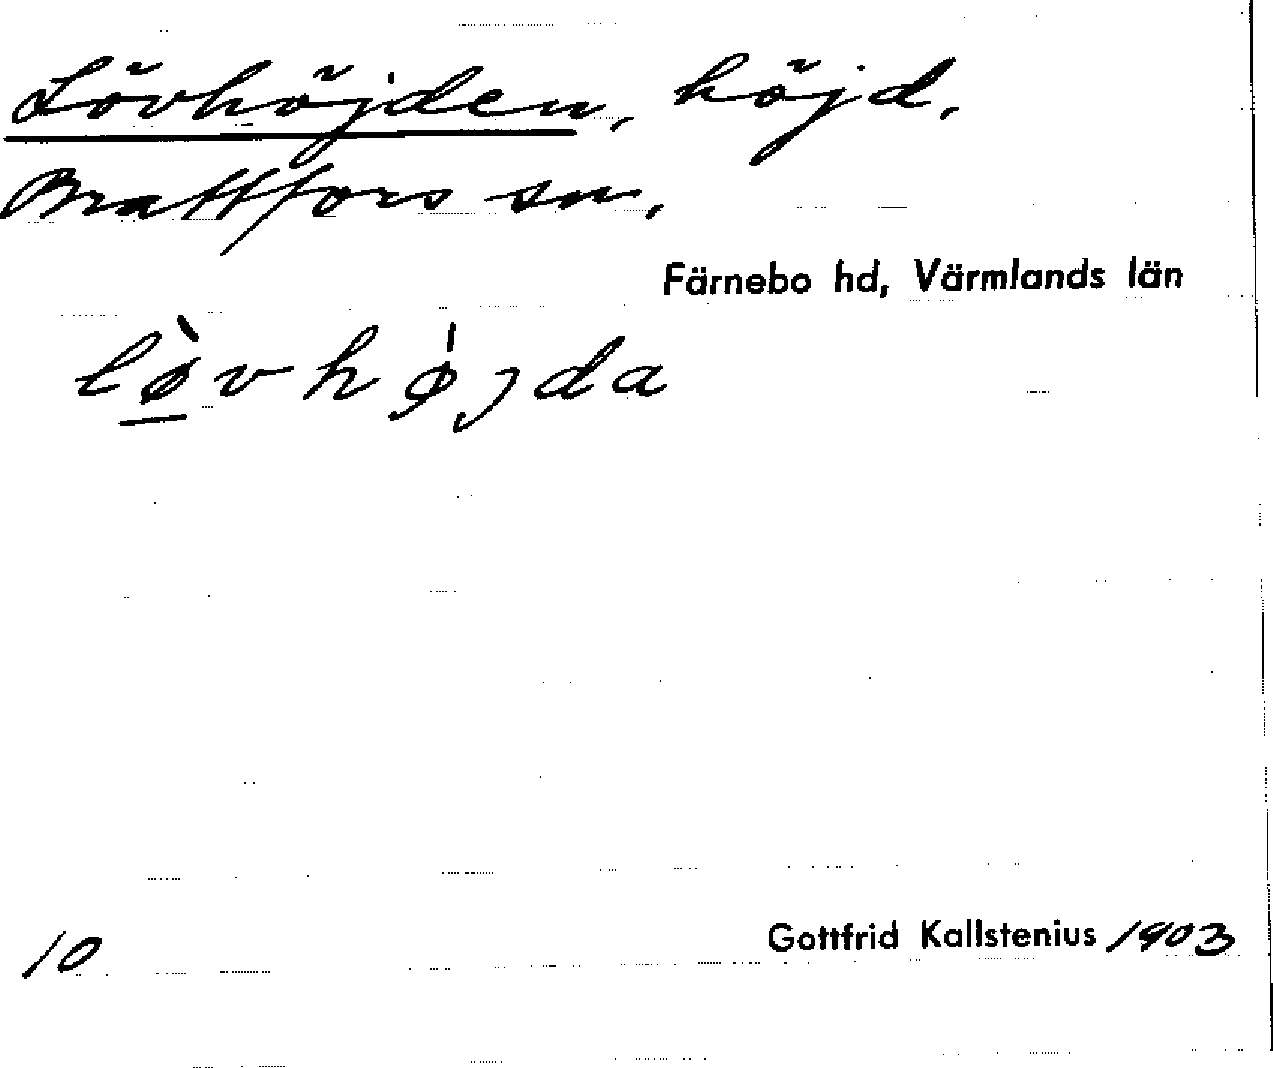 Lövhöjden, höjd.
Brattfors sn.
Färnebo hd, Värmlands län
lø̀vhǿjda
10
Gottfrid Kallstenius 1903